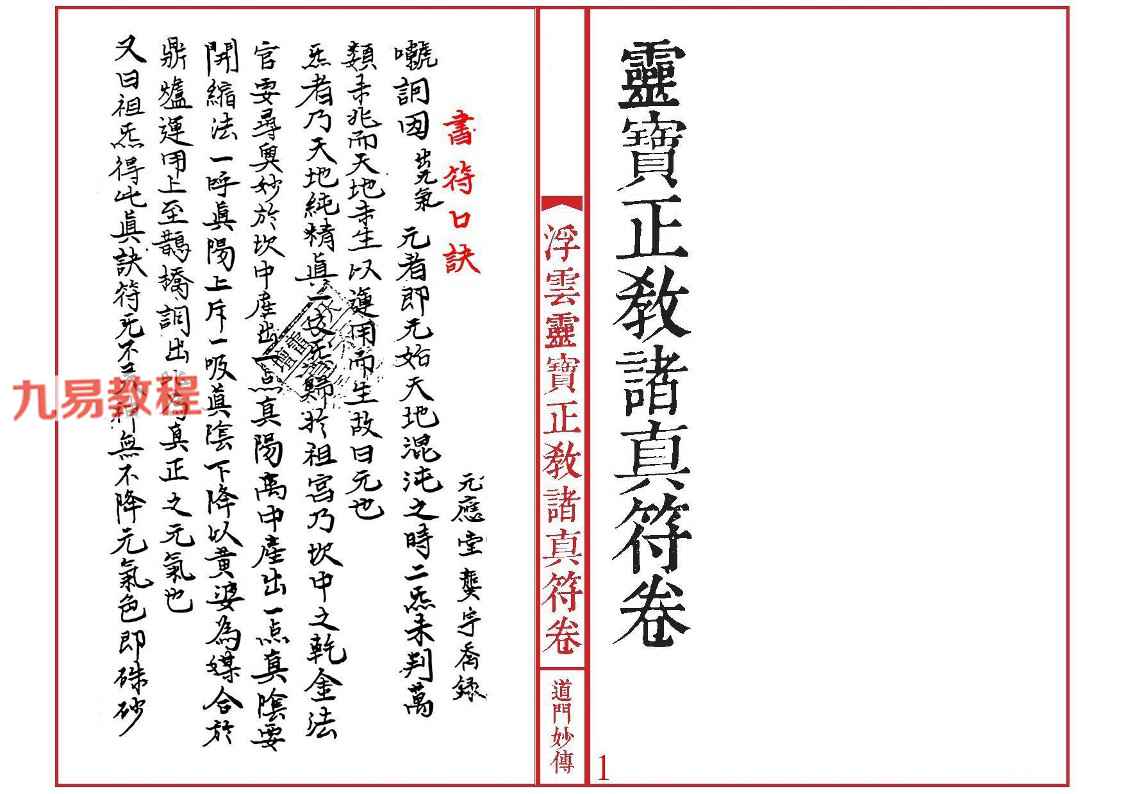 靈寶正教諸真符卷
1
浮雲靈寶正教諸真符卷
道門妙傳
書符口訣
元應堂龔宇喬錄
嚈詗因出元氣元者即元始天地混沌之時二炁未判萬
類未兆而天地未生以運用而生故曰元也
炁者乃天地純精真一歸於祖宫乃坎中之乾金法
官要尋奧妙於坎中產出一点真陽离中產出一点真陰要
開縮法一呼真陽上斥一吸真陰下降以黄婆為媒合於
鼎爐運用上至鵲橋詗出真正之元氣也
又曰祖炁得此真訣符无不無不降元氣色即硃砂
九易教程